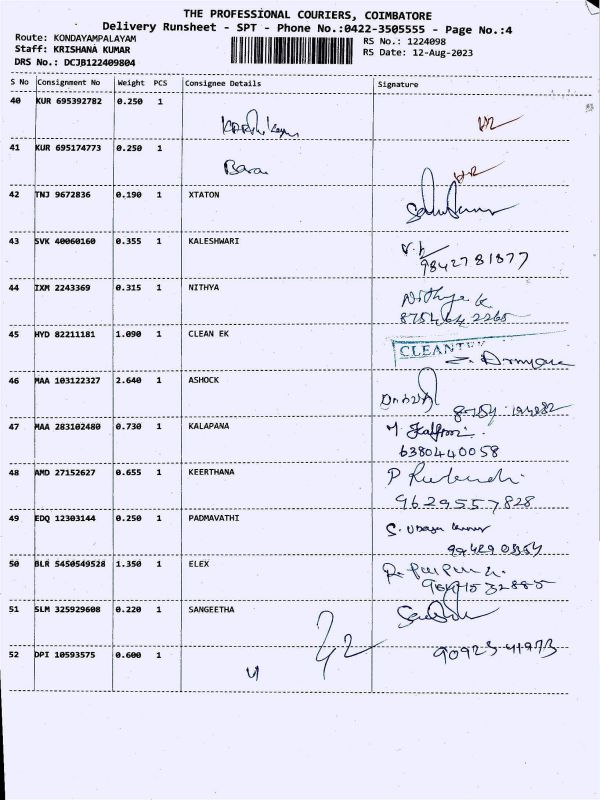 THE PROFESSIONAL COURIERS, COIMBATORE
Delivery Runsheet - SPT - Phone No.:0422-3505555 - Page No.:4
Route: KONDAYAMPALAYAM
RS No.: 1224098
Staff: KRISHANA KUMAR
RS Date: 12-Aug-2023
DRS No.: DCJB122409804
S No Consignment No Weight PCS Consignee Details Signature
40 KUR 695392782 0.250 1
41 KUR 695174773 0.250 1
42 TNJ 9672836 0.190 1 XTATON
43 SVK 40060160 0.355 1 KALESHWARI
9842781877
44 IXM 2243369 0.315 1 NITHYA
Nithya K
8754642265
45 HYD 82211181 1.090 1 CLEAN EK
46 MAA 103122327 2.640 1 ASHOCK
47 MAA 283102480 0.730 1 KALAPANA
6380440058
48 AMD 27152627 0.655 1 KEERTHANA
9629557828
49 EDQ 12303144 0.250 1 PADMAVATHI
50 BLR 5450549528 1.350 1 ELEX
51 SLM 325929608 0.220 1 SANGEETHA
52 DPI 10593575 0.600 1
90923 41973